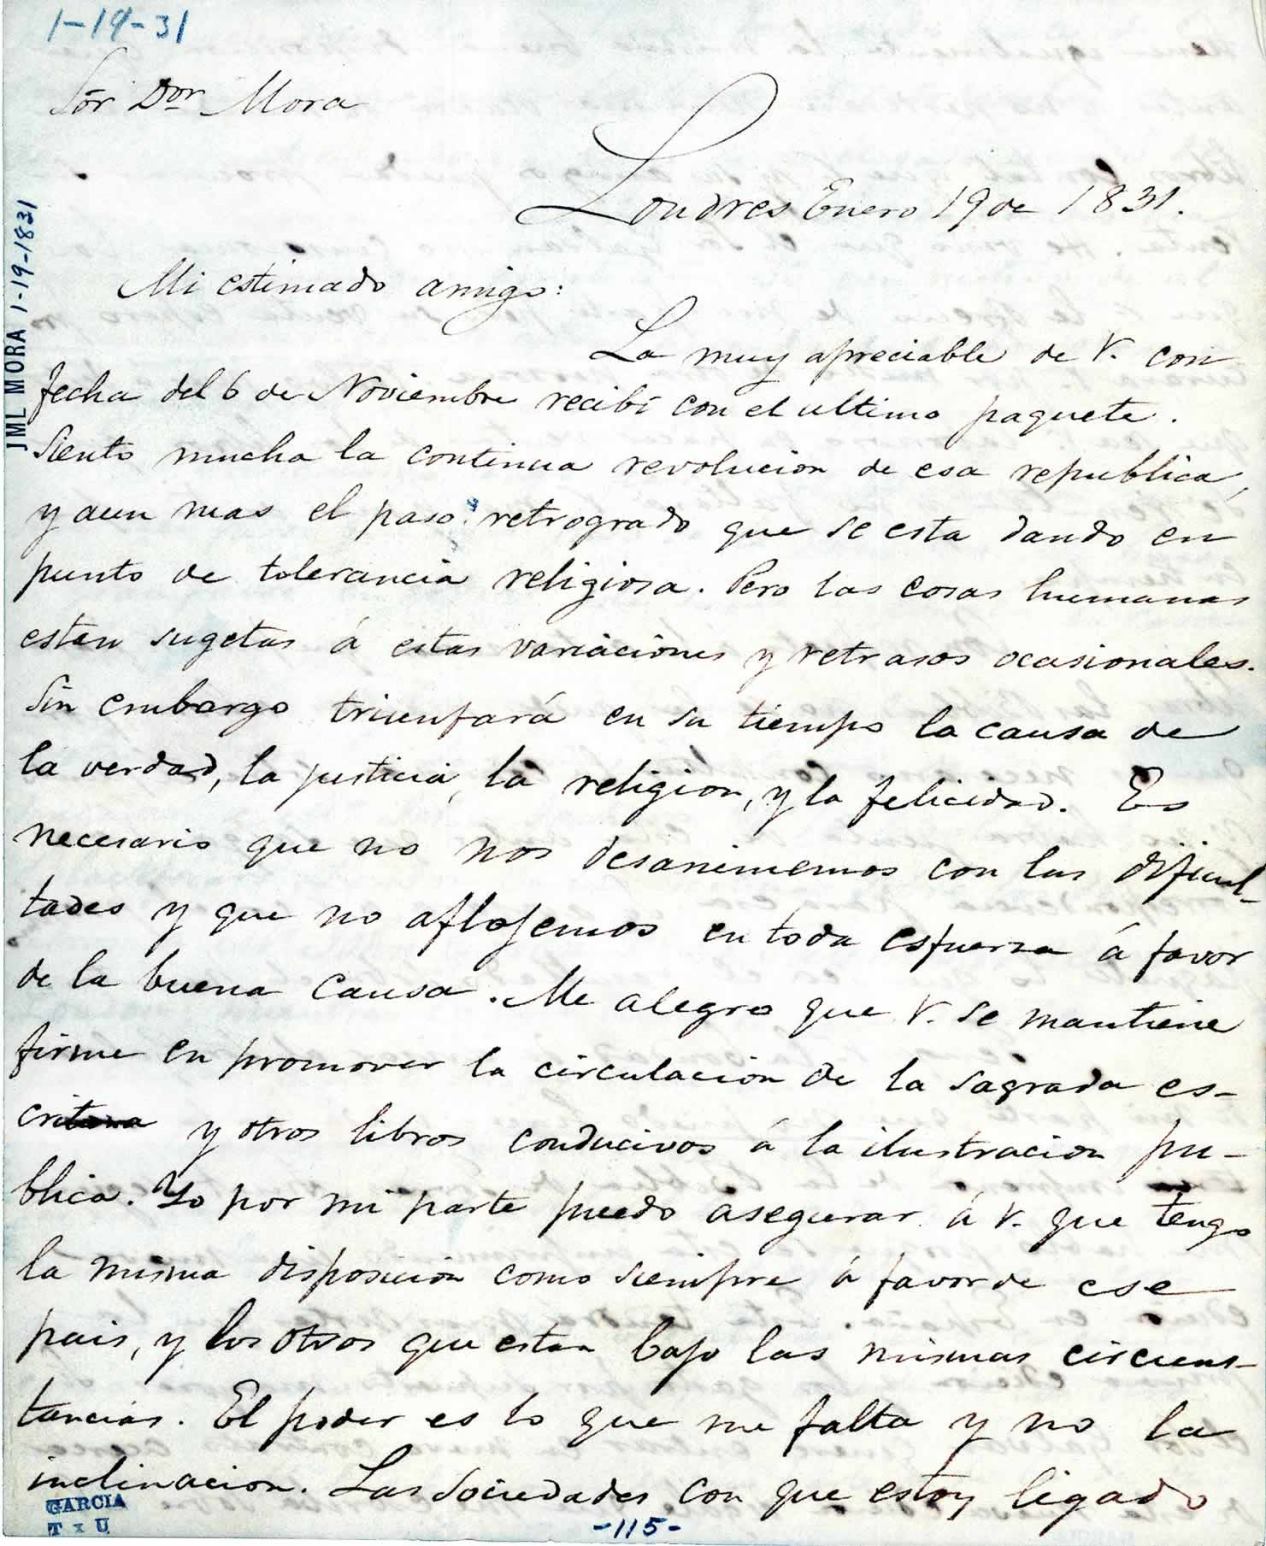 1-19-31
Sōr Dor Mora
Londres Enero 19 de 1831.
JML MORA 1-19-1831
Mi estimado amigo:
La muy apreciable de V. con
fecha del 6 de Noviembre recibi con el ultimo paquete.
Siento mucha la continua revolucion de esa republica,
y aun mas el paso retrogrado que se esta dando en
punto de tolerancia religiosa. Pero las cosas humanas
estan sugetas á estas variaciones y retrasos ocasionales.
Sin embargo triunfará en su tiempo la causa de
la verdad, la justicia, la religion, y la felicidad. Es
necesario que no nos desanimemos con las dificul-
tades y que no aflojemos en toda esfuerza á favor
de la buena causa. Me alegro que V. se mantiene
firme en promover la circulacion de la sagrada es-
critura y otros libros conducivos á la ilustracion pu-
blica. Yo por mi parte puedo asegurar á V. que tengo
la misma disposicion como siempre á favor de ese
pais, y los otros que estan bajo las mismas circuns-
tancias. El poder es lo que me falta y no la
inclinacion. Las Sociedades con que estoy ligado
GARCIA
T x U
-115-